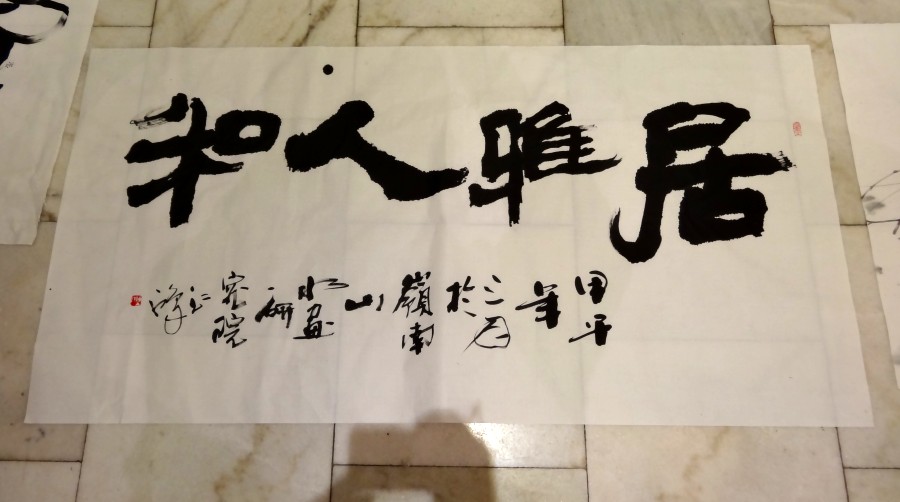 居雅人和
甲午年三月於嶺南山水畫研究院